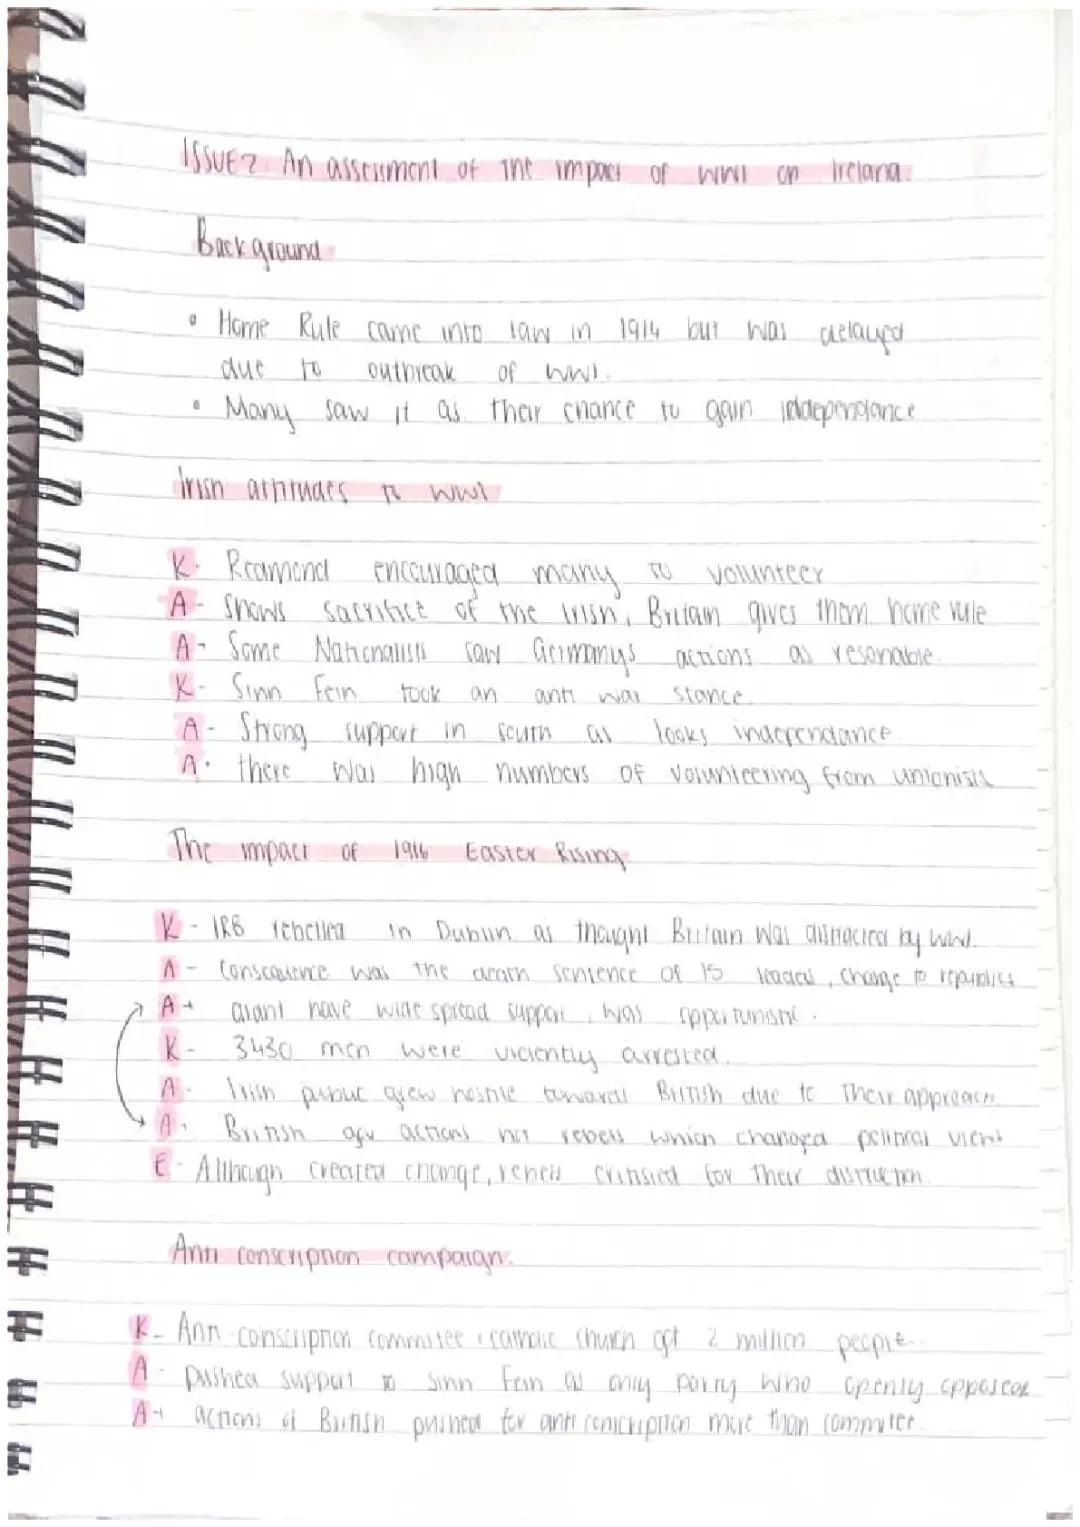 ISSUE 2: An assessment of the impact of WW1 on Ireland.
Background
• Home Rule came into law in 1914 but was delayed
due to outbreak of WW1.
• Many saw it as their chance to gain independance
Irish attitudes to WW1
K- Reamond encouraged many to volunteer
A- Shows sacrifice of the Irish, Britain gives them home rule
A- Some Nationalists saw Germanys actions as resonable.
K- Sinn Fein took an anti war stance.
A- Strong support in south as looks independance
A- there was high numbers of volunteering from unionists
The impact of 1916 Easter Rising
K- IRB rebelled in Dublin as thought Britain was distracted by WW1.
A- Consequence was the death sentence of 15 leaders, change to republics
A+ didnt have wide spread support, was oppurtunistic.
K- 3430 men were violently arrested.
A- Irish public grew hostile towards British due to their approach.
A. British gov actions not rebels which changed political views
E- Although created change, rebels critisied for their distruction.
Anti conscription campaign.
K- Anti-conscription commitee + catholic church got 2 million people.
A- pushed support to Sinn Fein as only party who openly opposed
A+ actions of British pushed for anti conscription more than commitee.